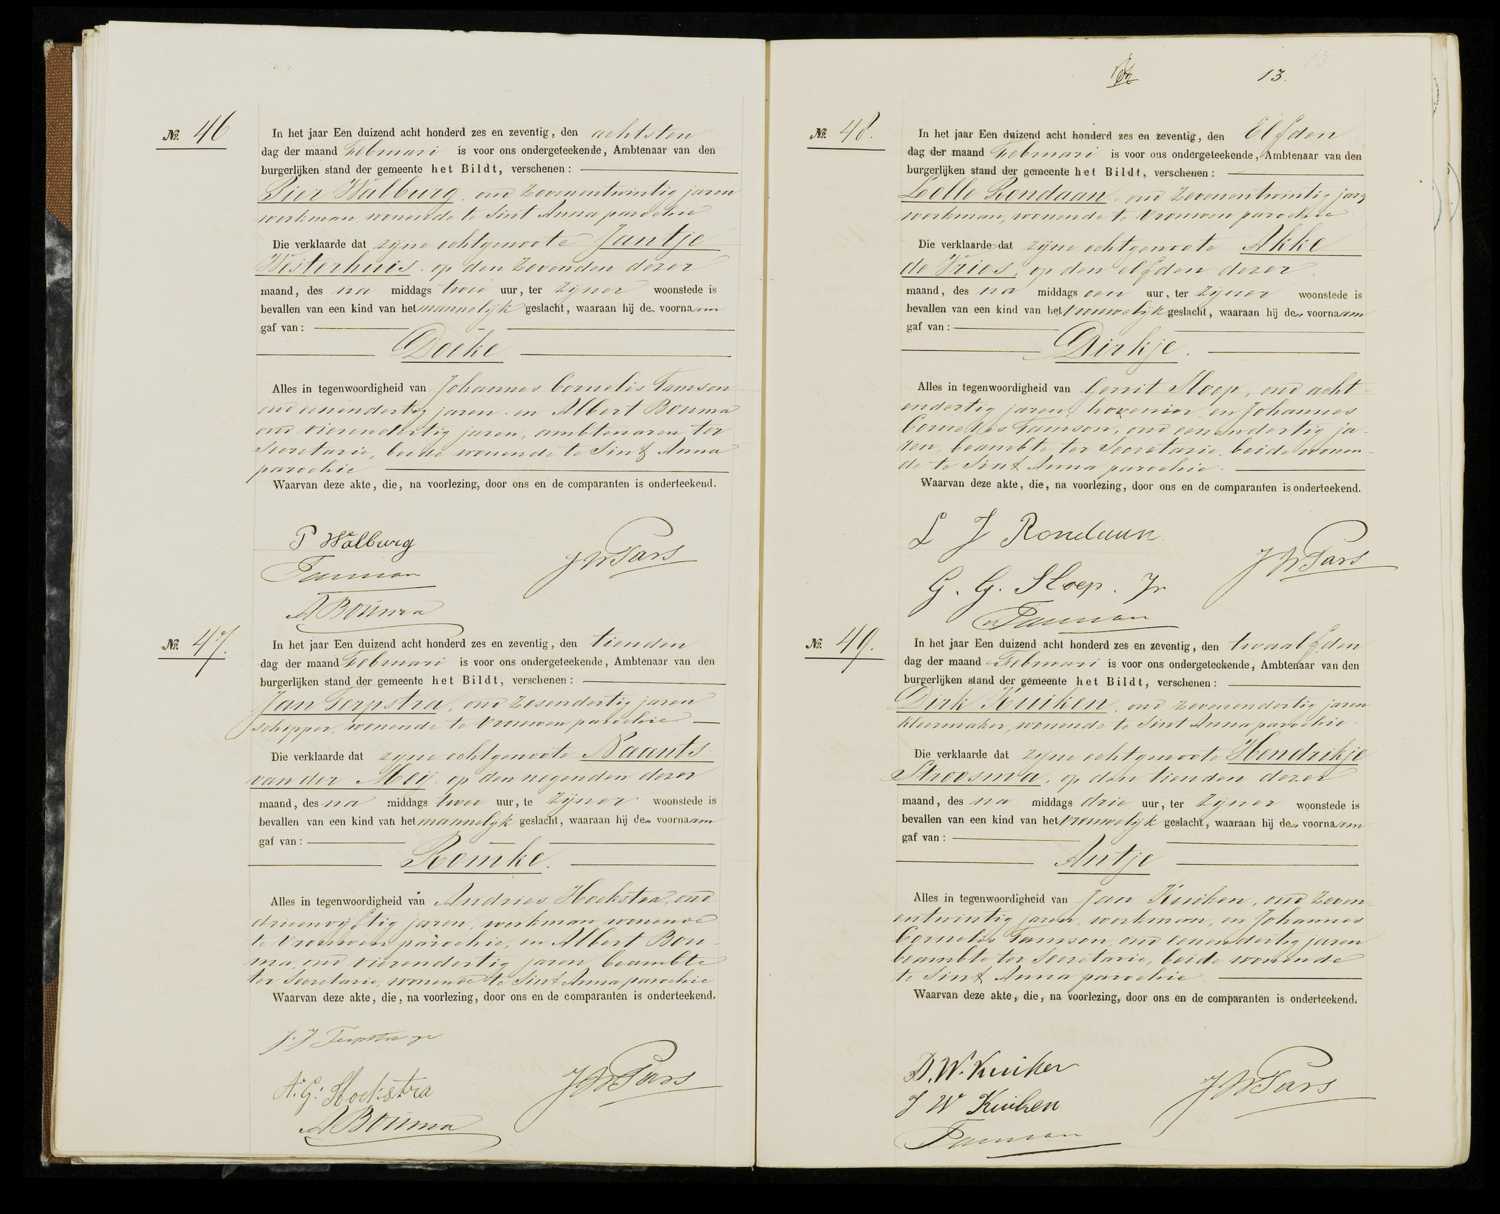 No. 46
In het jaar Een duizend acht honderd zes en zeventig, den achtsten
dag der maand Februari is voor ons ondergeteekende, Ambtenaar van den
burgerlijken stand der gemeente het Bildt, verschenen:
Pier Walburg, oud zevenentwintig jaren
werkman, wonende te Sint Anna parochie
Die verklaarde dat zijne echtgenoote Jantje
Westerhuis, op den zevenden dezer
maand, des na middags twee uur, ter zijner woonstede is
bevallen van een kind van het mannelijk geslacht, waaraan hij den voornaam
gaf van:
Doeke
Alles in tegenwoordigheid van Johannes Cornelis Tamson
oud eenendertig jaren en Albert Bouma
oud vierendertig jaren, ambtenaren ter
Secretarie, beide wonende te Sint Anna
parochie
Waarvan deze akte, die, na voorlezing, door ons en de comparanten is onderteekend.
P Walburg
JWPars
Tamson
ABouma
No. 47.
In het jaar Een duizend acht honderd zes en zeventig, den tienden
dag der maand Februari is voor ons ondergeteekende, Ambtenaar van den
burgerlijken stand der gemeente het Bildt, verschenen:
Jan Terpstra, oud zesendertig jaren
schipper, wonende te Vrouwen parochie
Die verklaarde dat zijne echtgenoote Naants
van der Meij op den negenden dezer
maand, des na middags twee uur, te zijner woonstede is
bevallen van een kind van het mannelijk geslacht, waaraan hij den voornaam
gaf van:
Reinke.
Alles in tegenwoordigheid van Andries Hoekstra, oud
drieenvijftig jaren, werkman, wonende
te Vrouwen parochie, en Albert Bou-
ma, oud vierendertig jaren, beambte
ter Secretarie, wonende te Sint Anna parochie
Waarvan deze akte, die, na voorlezing, door ons en de comparanten is onderteekend.
J. J Terpstra
A. G. Hoekstra
JWPars
ABouma
13.
No. 48.
In het jaar Een duizend acht honderd zes en zeventig, den Elfden
dag der maand Februari is voor ons ondergeteekende, Ambtenaar van den
burgerlijken stand der gemeente het Bildt, verschenen:
Lolle Rondaan, oud zevenentwintig jaren
werkman, wonende te Vrouwen parochie
Die verklaarde dat zijne echtgenoote Akke
de Vries, op den elfden dezer
maand, des na middags een uur, ter zijner woonstede is
bevallen van een kind van het vrouwelijk geslacht, waaraan hij den voornaam
gaf van:
Dirkje.
Alles in tegenwoordigheid van Gerrit Sloep, oud acht-
endertig jaren, hovenier en Johannes
Cornelis Tamson, oud eenendertig ja-
ren, beambte ter Secretarie, beide wonen-
de te Sint Anna parochie.
Waarvan deze akte, die, na voorlezing, door ons en de comparanten is onderteekend.
L J Rondaan
JWPars
G. G. Sloep. Jr
Tamson
No. 49.
In het jaar Een duizend acht honderd zes en zeventig, den twaalfden
dag der maand Februari is voor ons ondergeteekende, Ambtenaar van den
burgerlijken stand der gemeente het Bildt, verschenen:
Dirk Kuiken, oud zevenendertig jaren
kleermaker, wonende te Sint Anna parochie
Die verklaarde dat zijne echtgenoote Hendrikje
Stroosma, op den tienden dezer
maand, des na middags drie uur, ter zijner woonstede is
bevallen van een kind van het vrouwelijk geslacht, waaraan hij den voornaam
gaf van:
Antje
Alles in tegenwoordigheid van Jan Kuiken, oud zeven-
entwintig jaren, werkman, en Johannes
Cornelis Tamson, oud eenendertig jaren
beambte ter Secretarie, beide wonende
te Sint Anna parochie
Waarvan deze akte, die, na voorlezing, door ons en de comparanten is onderteekend.
D. W. Kuiken
J W Kuiken
JWPars
Tamson